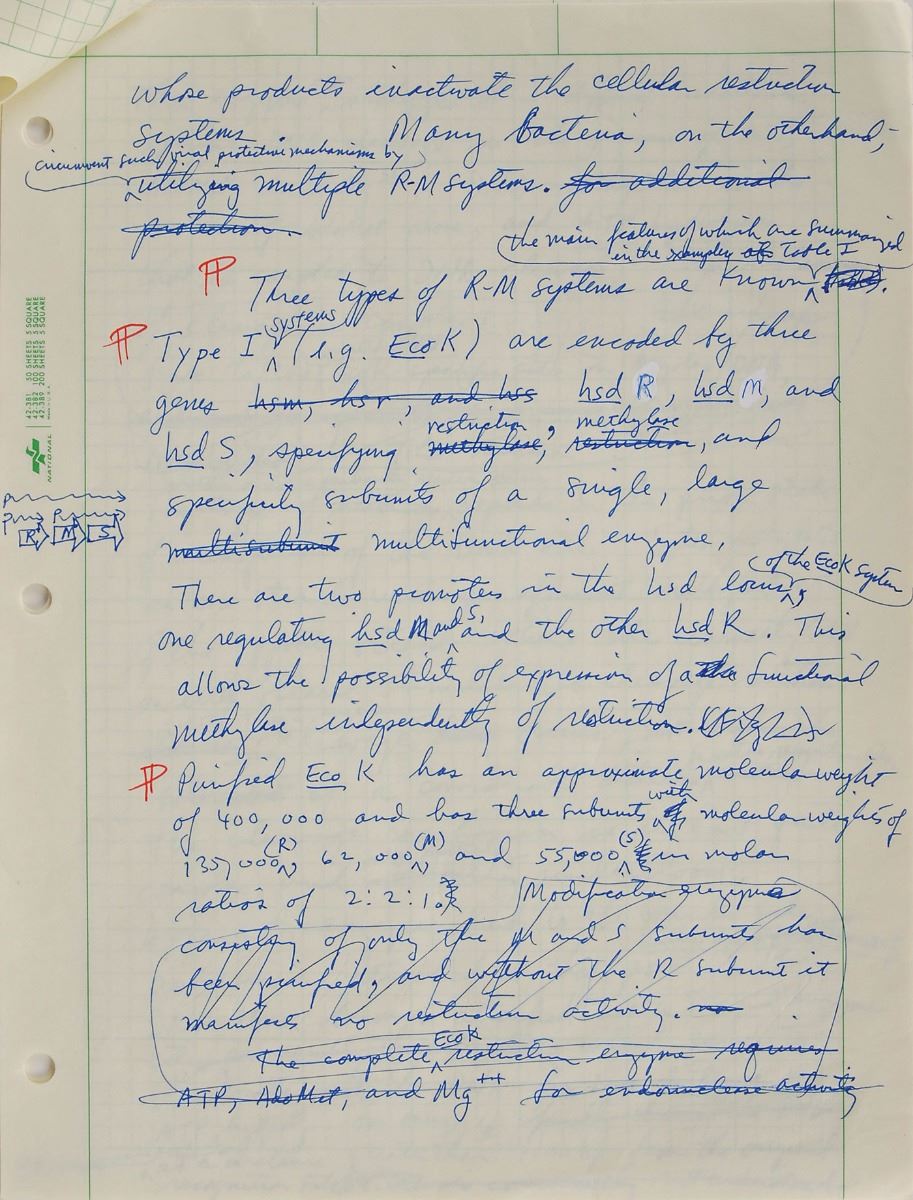 whose products inactivate the cellular restriction
systems. Many bacteria, on the otherhand,
circumvent such viral protective mechanisms by
utilizing multiple R-M systems. for additional
protection.
the main features of which are summarized
in the examples of Table I
Three types of R-M systems are known
systems
Type I (e.g. EcoK) are encoded by three
genes hsm, hsr, and hss hsd R, hsd M, and
restriction, methylase
hsd S, specifying methylase, restriction, and
specificity subunits of a single, large
multisubunit multifunctional enzyme,
R M S
of the EcoK system
There are two promoters in the hsd locus,
one regulating hsd M and S, and the other hsd R. This
allows the possibility of expression of a the functional
methylase independently of restriction.
Purified Eco K has an approximate molecular weight
with
of 400,000 and has three subunits molecular weights of
(R) (M) (S)
135,000, 62,000 and 55,000 in molar
ratios of 2:2:1. Modification enzyme
consisting of only the M and S subunits has
been purified, and without the R subunit it
manifests no restriction activity. no
EcoK
The complete restriction enzyme requires
ATP, AdoMet, and Mg++ for endonuclease activity
42-381 50 SHEETS 5 SQUARE
42-382 100 SHEETS 5 SQUARE
42-389 200 SHEETS 5 SQUARE
NATIONAL